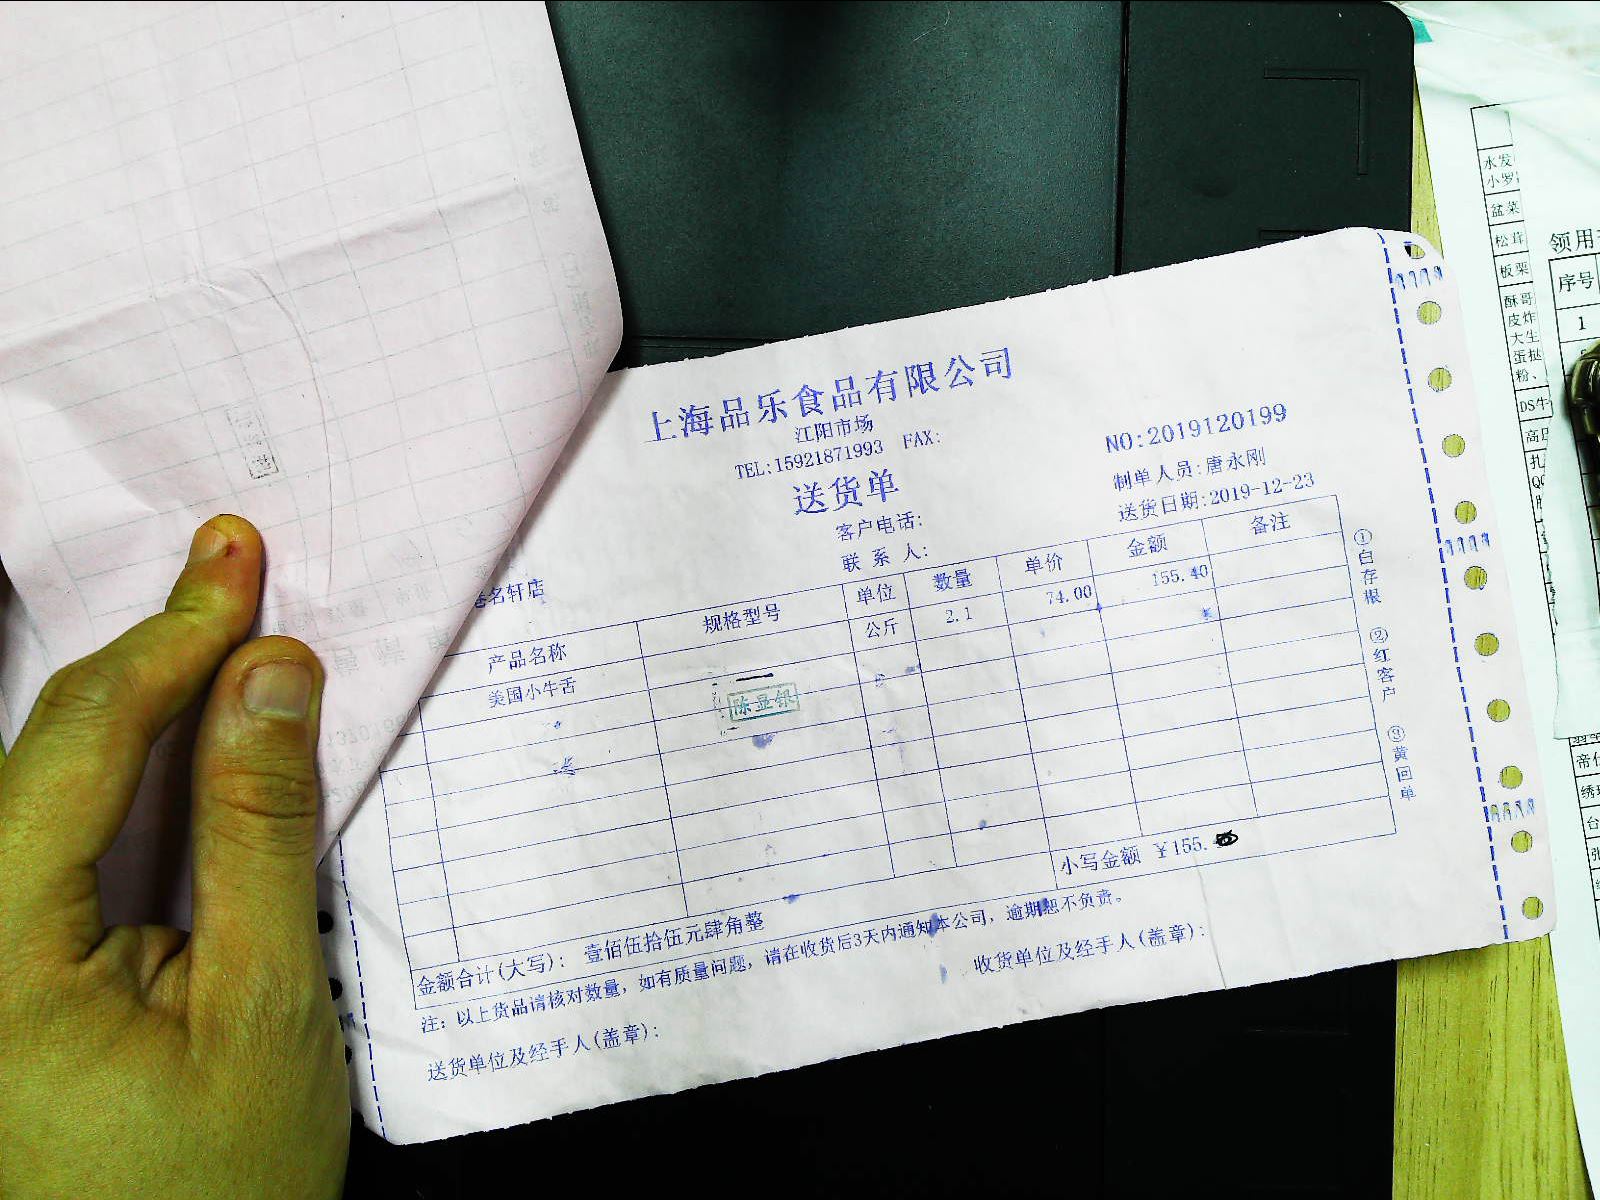 上海品乐食品有限公司
江阳市场
TEL:15921871993 FAX:
NO:2019120199
送货单
制单人员:唐永刚
客户电话:
送货日期:2019-12-23
联系人:
名轩店
产品名称 规格型号 单位 数量 单价 金额 备注
美国小牛舌 公斤 2.1 74.00 155.40
陈显银
小写金额 ¥155.
金额合计(大写): 壹佰伍拾伍元肆角整
注: 以上货品请核对数量, 如有质量问题, 请在收货后3天内通知本公司, 逾期恕不负责。
送货单位及经手人(盖章): 收货单位及经手人(盖章):
①白存根 ②红客户 ③黄回单
水发
小罗
盆菜
松茸
板栗
酥哥
皮炸
大生
蛋挞
粉、
DS牛
领用
序号
1